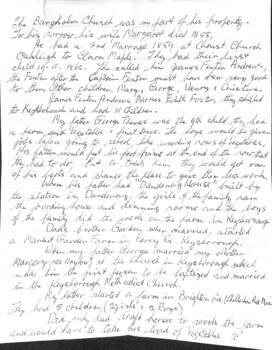 The Bangholm Church was on part of his property.
To his sorrow, his wife Margaret died 1855,
He had a 2nd Marriage 1859 at Christ Church
Geelong to Clara Maple. They had their first
child Oct 1860. She called him James Fenton Andrews,
the Fenton after the Captain Fenton must have been very good
to them. Other children, Mary, George, Henry & Christina.
James Fenton Andrews Marries Edith Foster, they shifted
to Keysborough had 10 children.
My father George Thomas was the 9th child, they had
a farm with vegetables & fruit trees. The boys would be given
jobs before going to school, like weeding rows of vegetables,
My father would put his foot prints at the end of the row that
he had to do. But his brother they would get some
of his jobs and change the place to give them less work.
When his father had Dandenong House built by
the station in Dandenong, the girls of the family ran
the boarding house and dinning rooms and the boys
of the family did the work on the farm in Keysborough
Dads brother Gordon when married, started
a Market Garden Farm in Perry Rd Keysborough,
When my father George married my mother
Marjory at the church in Keysborough which
made him the first person to be baptized and married
in the Keysborough Methodist Church.
My father started a farm in Brighton Rd
They had 5 children (2 girls & 3 Boys)
Dad only had draft horses to work the farm
and would have to take his load of vegetables to